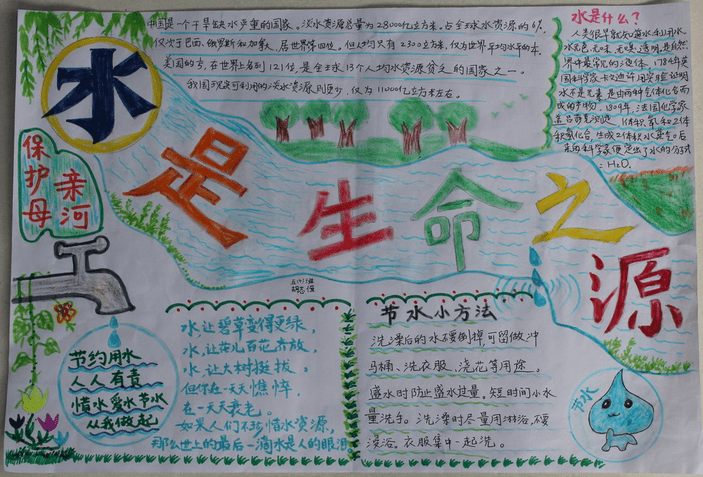 中国是一个干旱缺水严重的国家。淡水资源总量为28000亿立方米。占全球水资源的6%
仅次于巴西、俄罗斯和加拿大,居世界第四位。但人均只有2300立方米,仅为世界平均水平的
美国的 在世界上名列121位,是全球13个人均水资源贫乏的国家之一。
我国现实可利用的淡水资源则更少,仅为11000亿立方米左右。
水是什么?
人类很早就 水
水无色、无味、无嗅、透明,是自然
界中最常见的液体。1784年英
国科学家卡文迪许用实验证明
水不是元素,是由两种气体化合而
成的产物。1809年,法国化学家
盖吕萨克 1体积氧和2体
积氢化合,生成2体积水蒸气。后
来的科学家便定出了水的分子式
=H₂O.
水是生命之源
保护母亲河
节约用水
人人有责
惜水爱水节水
从我做起
水,让碧草变得更绿,
水,让花儿百花齐放,
水,让大树挺拔。
但你在一天天憔悴,
在一天天衰老。
如果人们不珍惜水资源,
那么世上的最后一滴水是人的眼泪。
节水小方法
洗澡后的水不要倒掉,可留做冲
马桶、洗衣服、浇花等用途。
盛水时防止盛水过量。短时间小水
量洗手。洗澡时尽量用淋浴,不要
浸浴。衣服集中一起洗。
节水